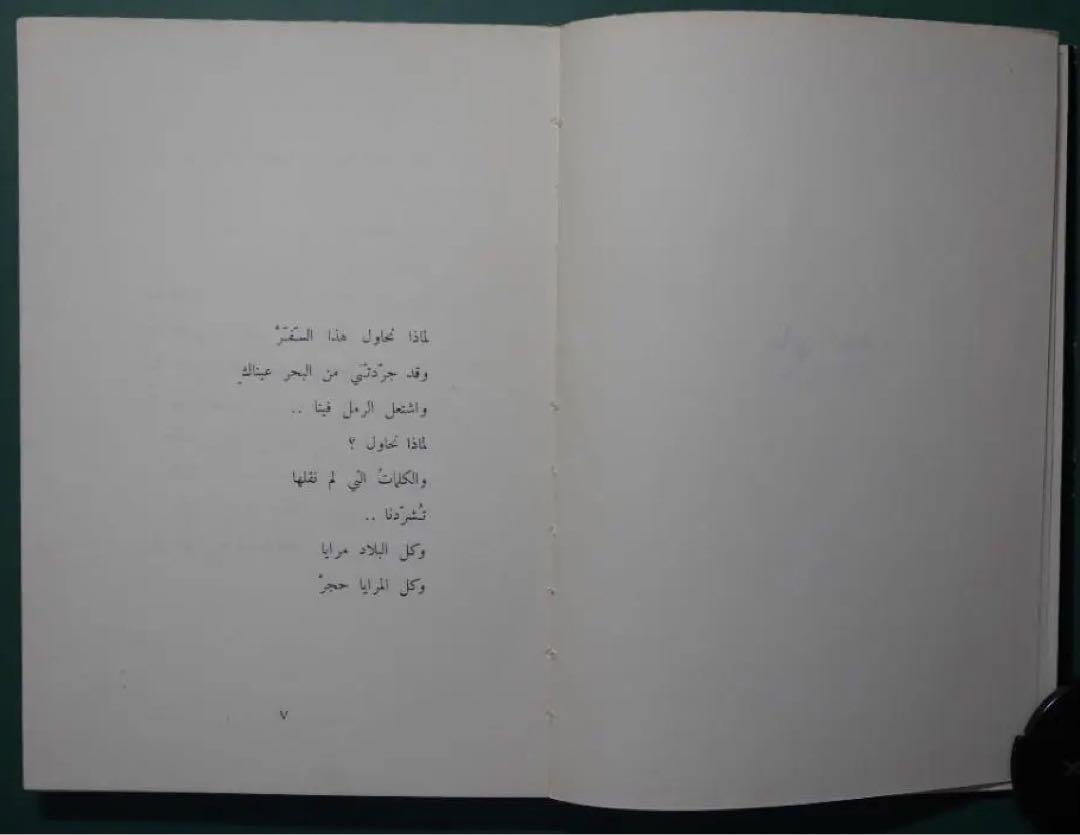 لماذا نحاول هذا السّفَرْ
وقد جرّدتْني من البحر عيناكِ
واشتعل الرمل فينا ..
لماذا نحاول ؟
والكلماتُ التي لم نقلها
تُشرّدنا ..
وكل البلاد مرايا
وكل المرايا حجرْ
٧